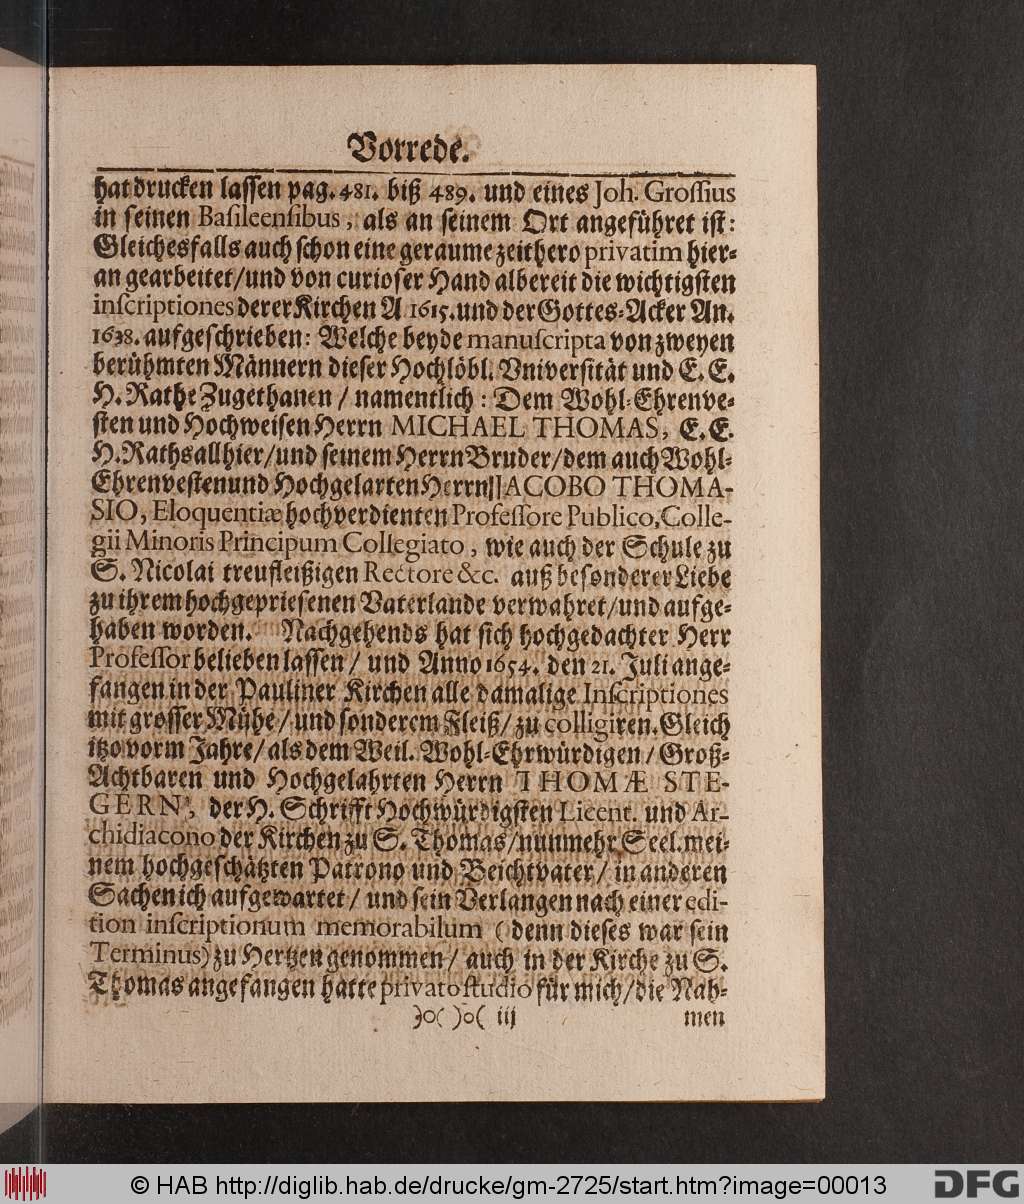 Vorrede.
hat drucken lassen pag. 481. biß 489. und eines Joh. Grossius
in seinen Basileensibus, als an seinem Ort angeführet ist:
Gleichesfalls auch schon eine geraume zeithero privatim hier-
an gearbeitet/und von curioser Hand albereit die wichtigsten
inscriptiones derer Kirchen A 1615. und der Gottes-Acker An.
1638. aufgeschrieben: Welche beyde manuscripta von zweyen
berühmten Männern dieser Hochlöbl. Universität und E. E.
H. Rathe Zugethanen / namentlich: Dem Wohl-Ehrenve-
sten und Hochweisen Herrn MICHAEL THOMAS, E. E.
H. Raths allhier/und seinem Herrn Bruder/dem auch Wohl-
Ehrenvesten und Hochgelarten Herrn JACOBO THOMA-
SIO, Eloquentiæ hochverdienten Professore Publico, Colle-
gii Minoris Principum Collegiato, wie auch der Schule zu
S. Nicolai treufleißigen Rectore &c. auß besonderer Liebe
zu ihrem hochgepriesenen Vaterlande verwahret/und aufge-
haben worden. Nachgehends hat sich hochgedachter Herr
Professor belieben lassen / und Anno 1654. den 21. Juli ange-
fangen in der Pauliner Kirchen alle damalige Inscriptiones
mit grosser Mühe/und sonderem Fleiß/zu colligiren. Gleich
itzo vorm Jahre/als dem Weil. Wohl-Ehrwürdigen/Groß-
Achtbaren und Hochgelahrten Herrn THOMÆ STE-
GERN, der H. Schrifft Hochwürdigsten Licent. und Ar-
chidiacono der Kirchen zu S. Thomas/nunmehr Seel. mei-
nem hochgeschätzten Patrono und Beichtvater/in anderen
Sachen ich aufgewartet/ und sein Verlangen nach einer edi-
tion inscriptionum memorabilum (denn dieses war sein
Terminus) zu Hertzen genommen/ auch in der Kirche zu S.
Thomas angefangen hatte privato studio für mich/die Nah-
)o( )o( iij men
© HAB http://diglib.hab.de/drucke/gm-2725/start.htm?image=00013
DFG